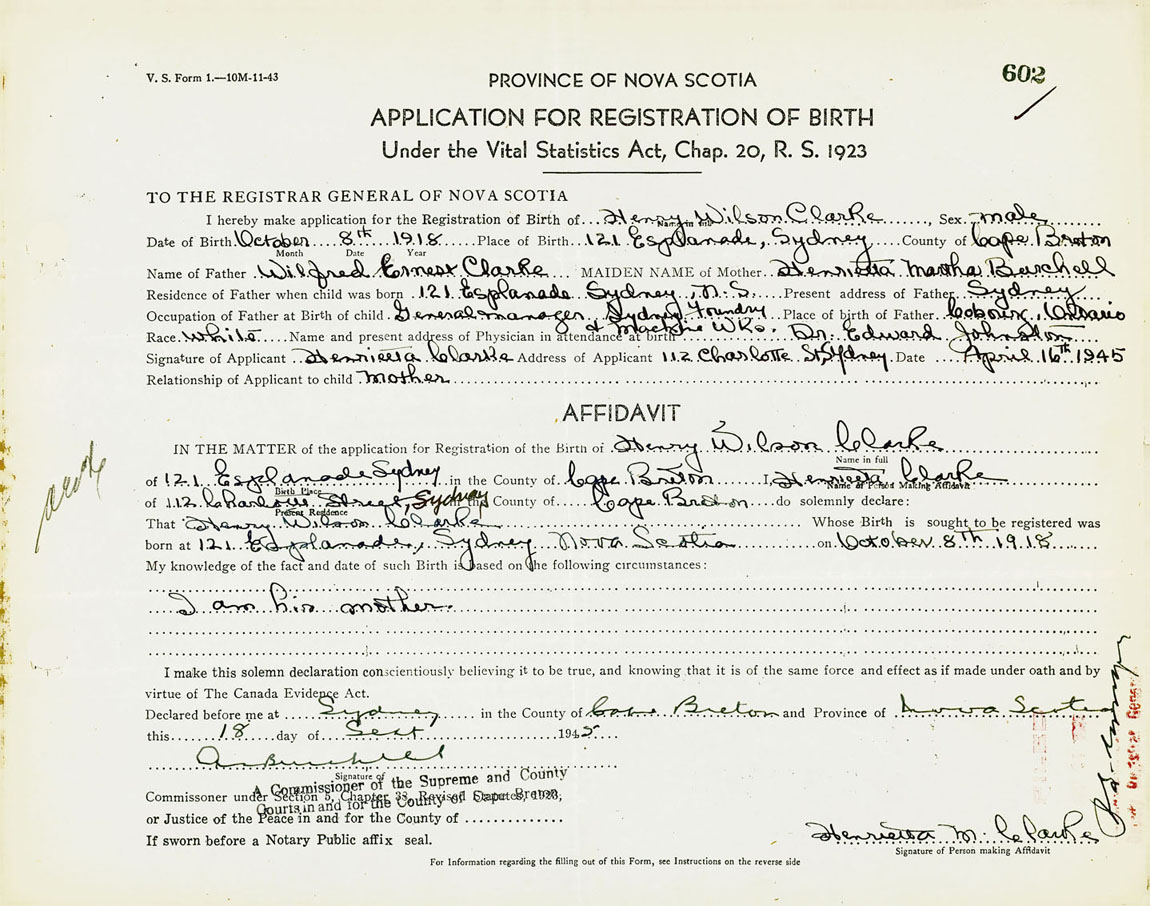 V. S. Form 1.—10M-11-43
PROVINCE OF NOVA SCOTIA
602
APPLICATION FOR REGISTRATION OF BIRTH
Under the Vital Statistics Act, Chap. 20, R. S. 1923
TO THE REGISTRAR GENERAL OF NOVA SCOTIA
I hereby make application for the Registration of Birth of Henry Wilson Clarke, Sex male
Name in full
Date of Birth October 8th 1918 Place of Birth 121 Esplanade, Sydney County of Cape Breton
Month Date Year
Name of Father Wilfred Ernest Clarke MAIDEN NAME of Mother Henrietta Martha Burchell
Residence of Father when child was born 121 Esplanade Sydney, N.S. Present address of Father Sydney
Occupation of Father at Birth of child General manager Sydney Foundry Place of birth of Father Cobourg, Ontario
& Machine Wks.
Race White Name and present address of Physician in attendance at birth Dr. Edward Johnston
Signature of Applicant Henrietta Clarke Address of Applicant 112 Charlotte St, Sydney Date April 16th 1945
Relationship of Applicant to child Mother
AFFIDAVIT
IN THE MATTER of the application for Registration of the Birth of Henry Wilson Clarke
Name in full
of 121 Esplanade Sydney in the County of Cape Breton I, Henrietta Clarke
Birth Place Name of Person Making Affidavit
of 112 Charlotte Street, Sydney in the County of Cape Breton do solemnly declare:
Present Residence
That Henry Wilson Clarke Whose Birth is sought to be registered was
born at 121 Esplanade, Sydney Nova Scotia on October 8th 1918
My knowledge of the fact and date of such Birth is based on the following circumstances:
I am his mother.
I make this solemn declaration conscientiously believing it to be true, and knowing that it is of the same force and effect as if made under oath and by
virtue of The Canada Evidence Act.
Declared before me at Sydney in the County of Cape Breton and Province of Nova Scotia
this 18 day of Sept 1945
Signature of
A Commissioner of the Supreme and County
Commissioner under Section 5, Chapter 38, Revised Statutes, 1923,
Courts in and for the County of Cape Breton
or Justice of the Peace in and for the County of
If sworn before a Notary Public affix seal.
Henrietta M. Clarke
Signature of Person making Affidavit
For Information regarding the filling out of this Form, see Instructions on the reverse side